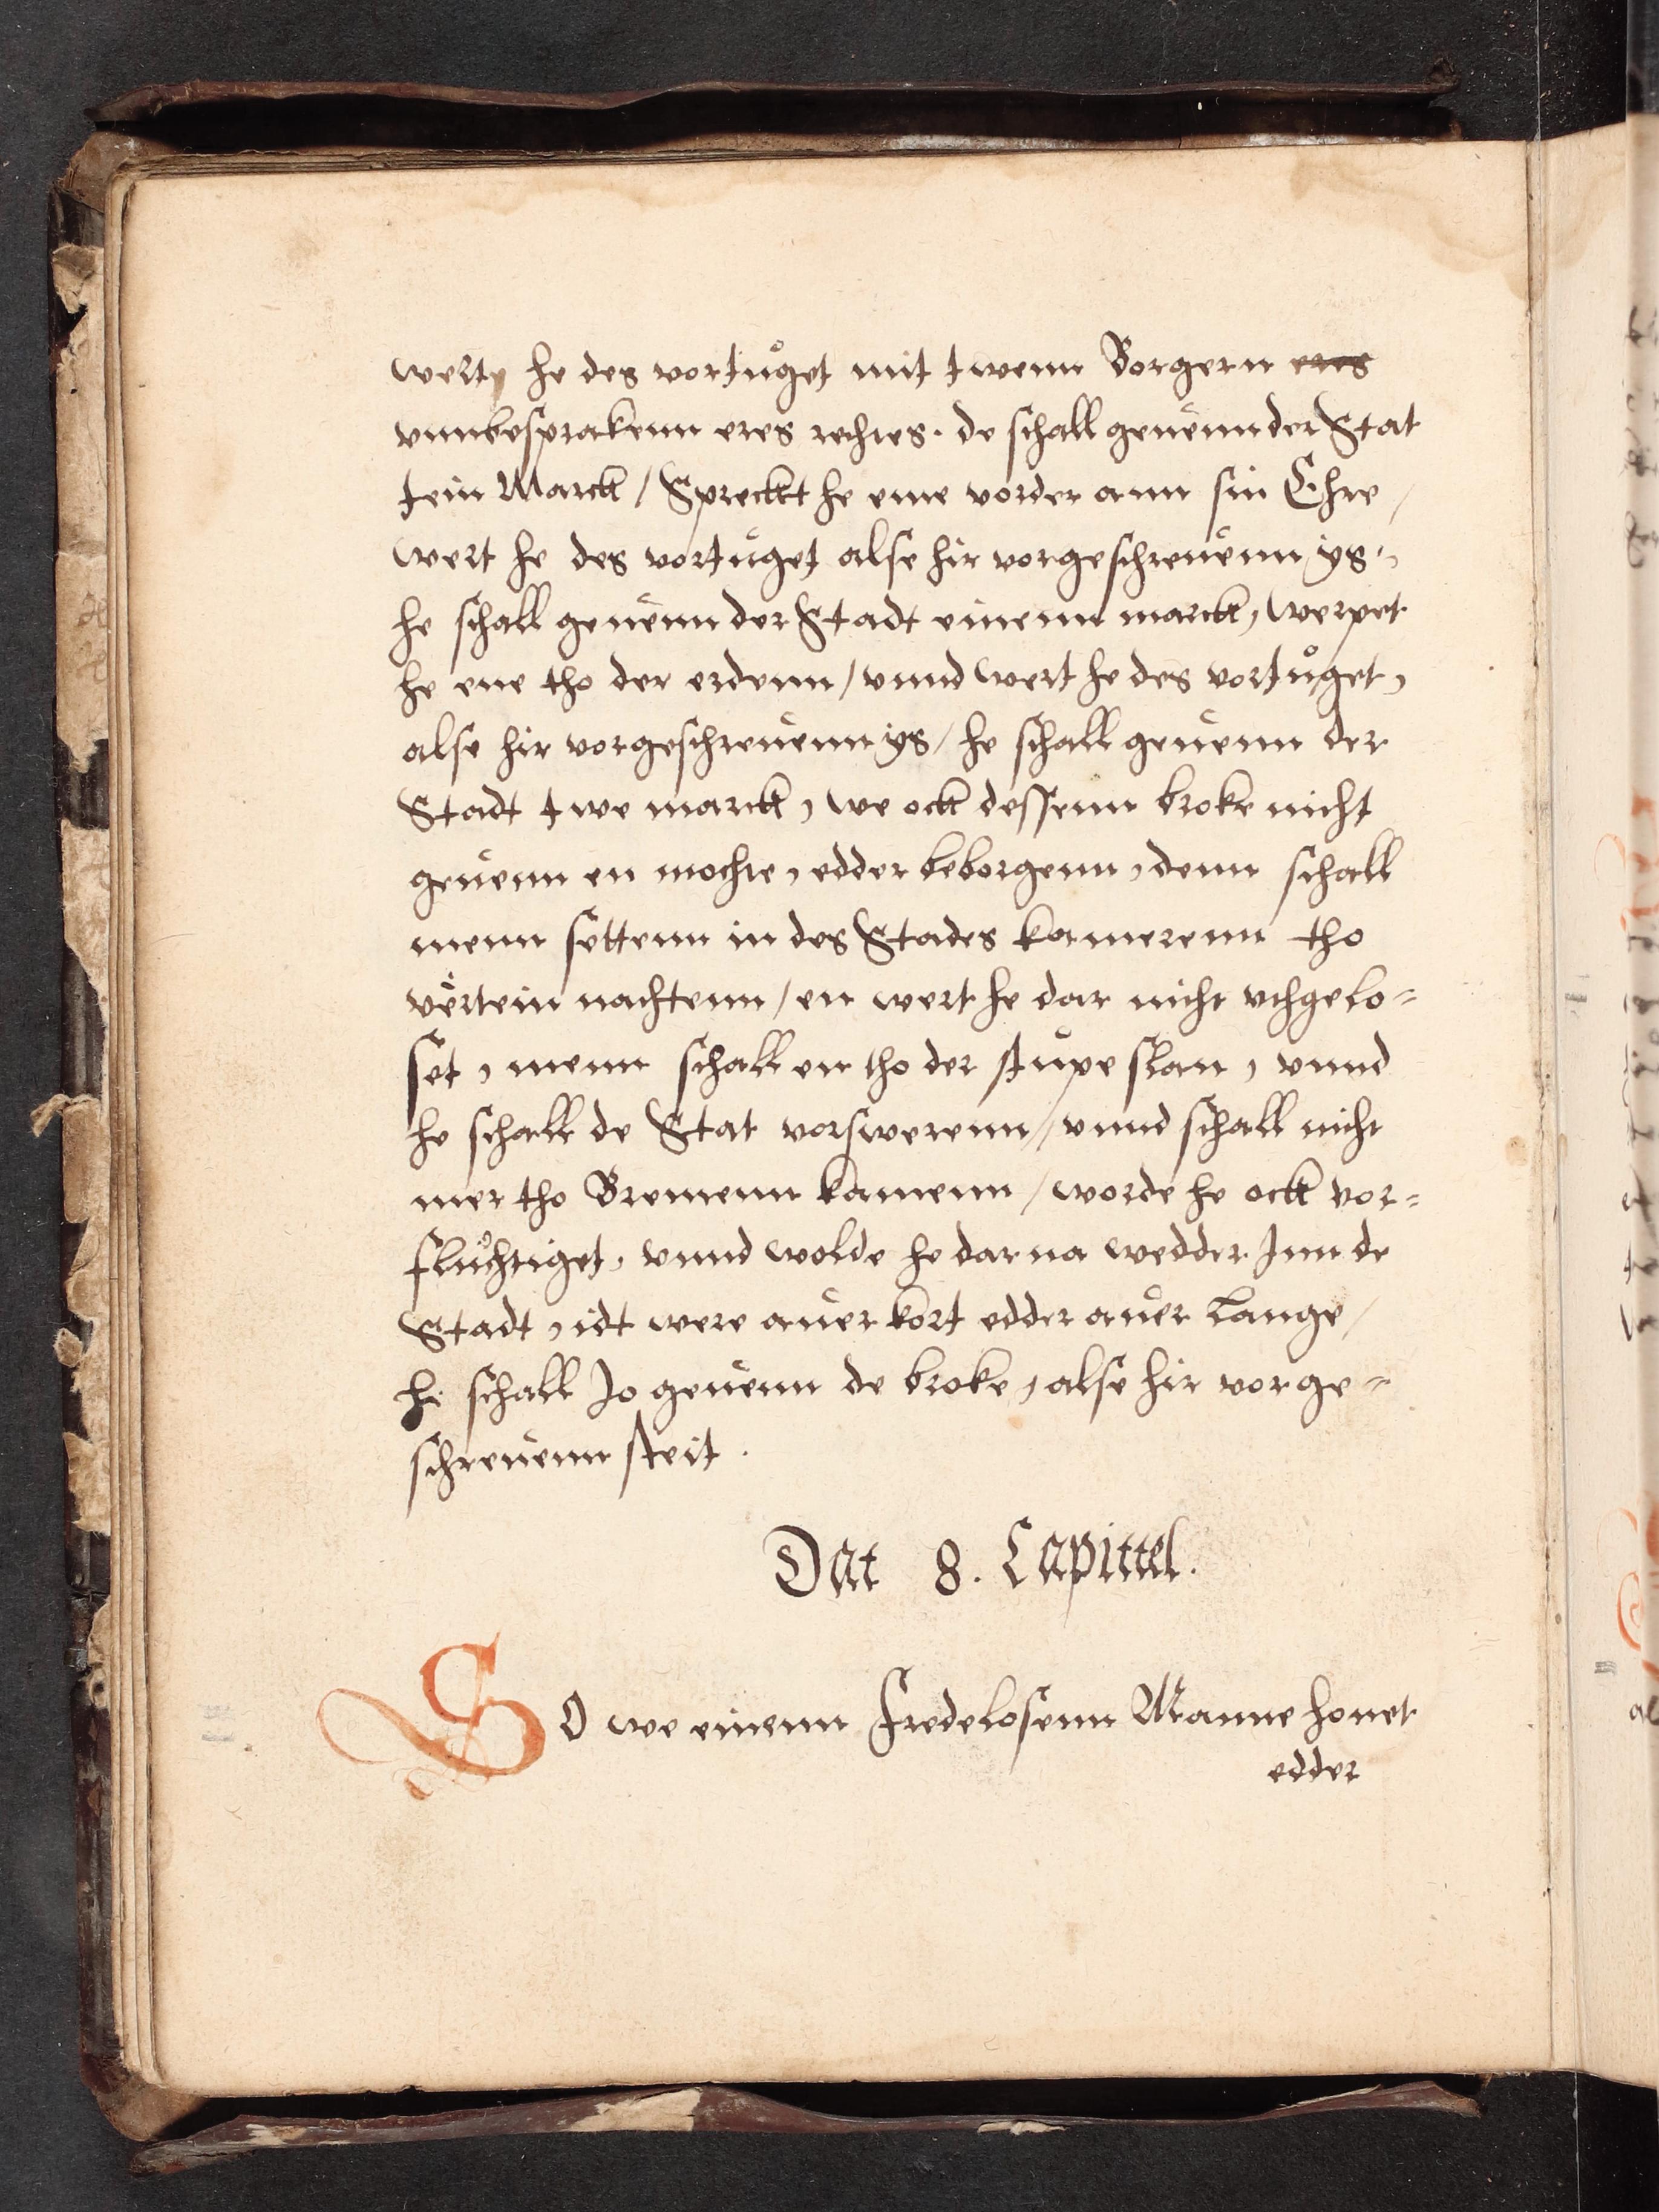 wert he des vortůget mit twenn Borgern eres
vnnbesprakenn eres rechtes. de schall geuenn der Stat
tein Marck / Spreckt he eme vorder ann sin Ehre /
wert he des vortuget alse hir vorgeschreuenn ys,
he schall geuenn der Stadt einenn marck, werpet
he ene tho der erdenn / vnnd wert he des vortůget,
alse hir vorgeschreuenn ys / he schall geuenn der
Stadt twe marck, we ock dessenn broke nicht
geuenn en mochte, edder beborgenn, denn schall
menn settenn in des Stades kamerenn tho
vertein nachtenn / en wert he dar nicht vthgelo=
set, menn schall en tho der stupe slan, vnnd
he schall de Stat vorswerenn // vnnd schall nicht
mer tho Bremenn kamenn / worde he ock vor=
flůchtiget, vnnd wolde he darna wedder Inn de
Stadt, idt were auer kort edder auer lange /
he schall Jo geuenn de broke, alse hir vorge=
schreuenn steit.
Dat 8. Capittel.
SO we einenn Fredelosenn Manne houet
edder